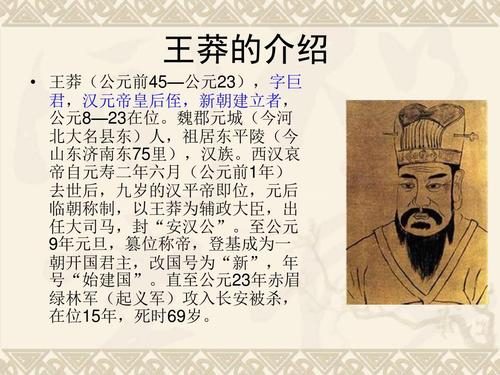 王莽的介绍
• 王莽（公元前45—公元23），字巨
君，汉元帝皇后侄，新朝建立者，
公元8—23在位。魏郡元城（今河
北大名县东）人，祖居东平陵（今
山东济南东75里），汉族。西汉哀
帝自元寿二年六月（公元前1年）
去世后，九岁的汉平帝即位，元后
临朝称制，以王莽为辅政大臣，出
任大司马，封“安汉公”。至公元
9年元旦，篡位称帝，登基成为一
朝开国君主，改国号为“新”，年
号“始建国”。直至公元23年赤眉
绿林军（起义军）攻入长安被杀，
在位15年，死时69岁。